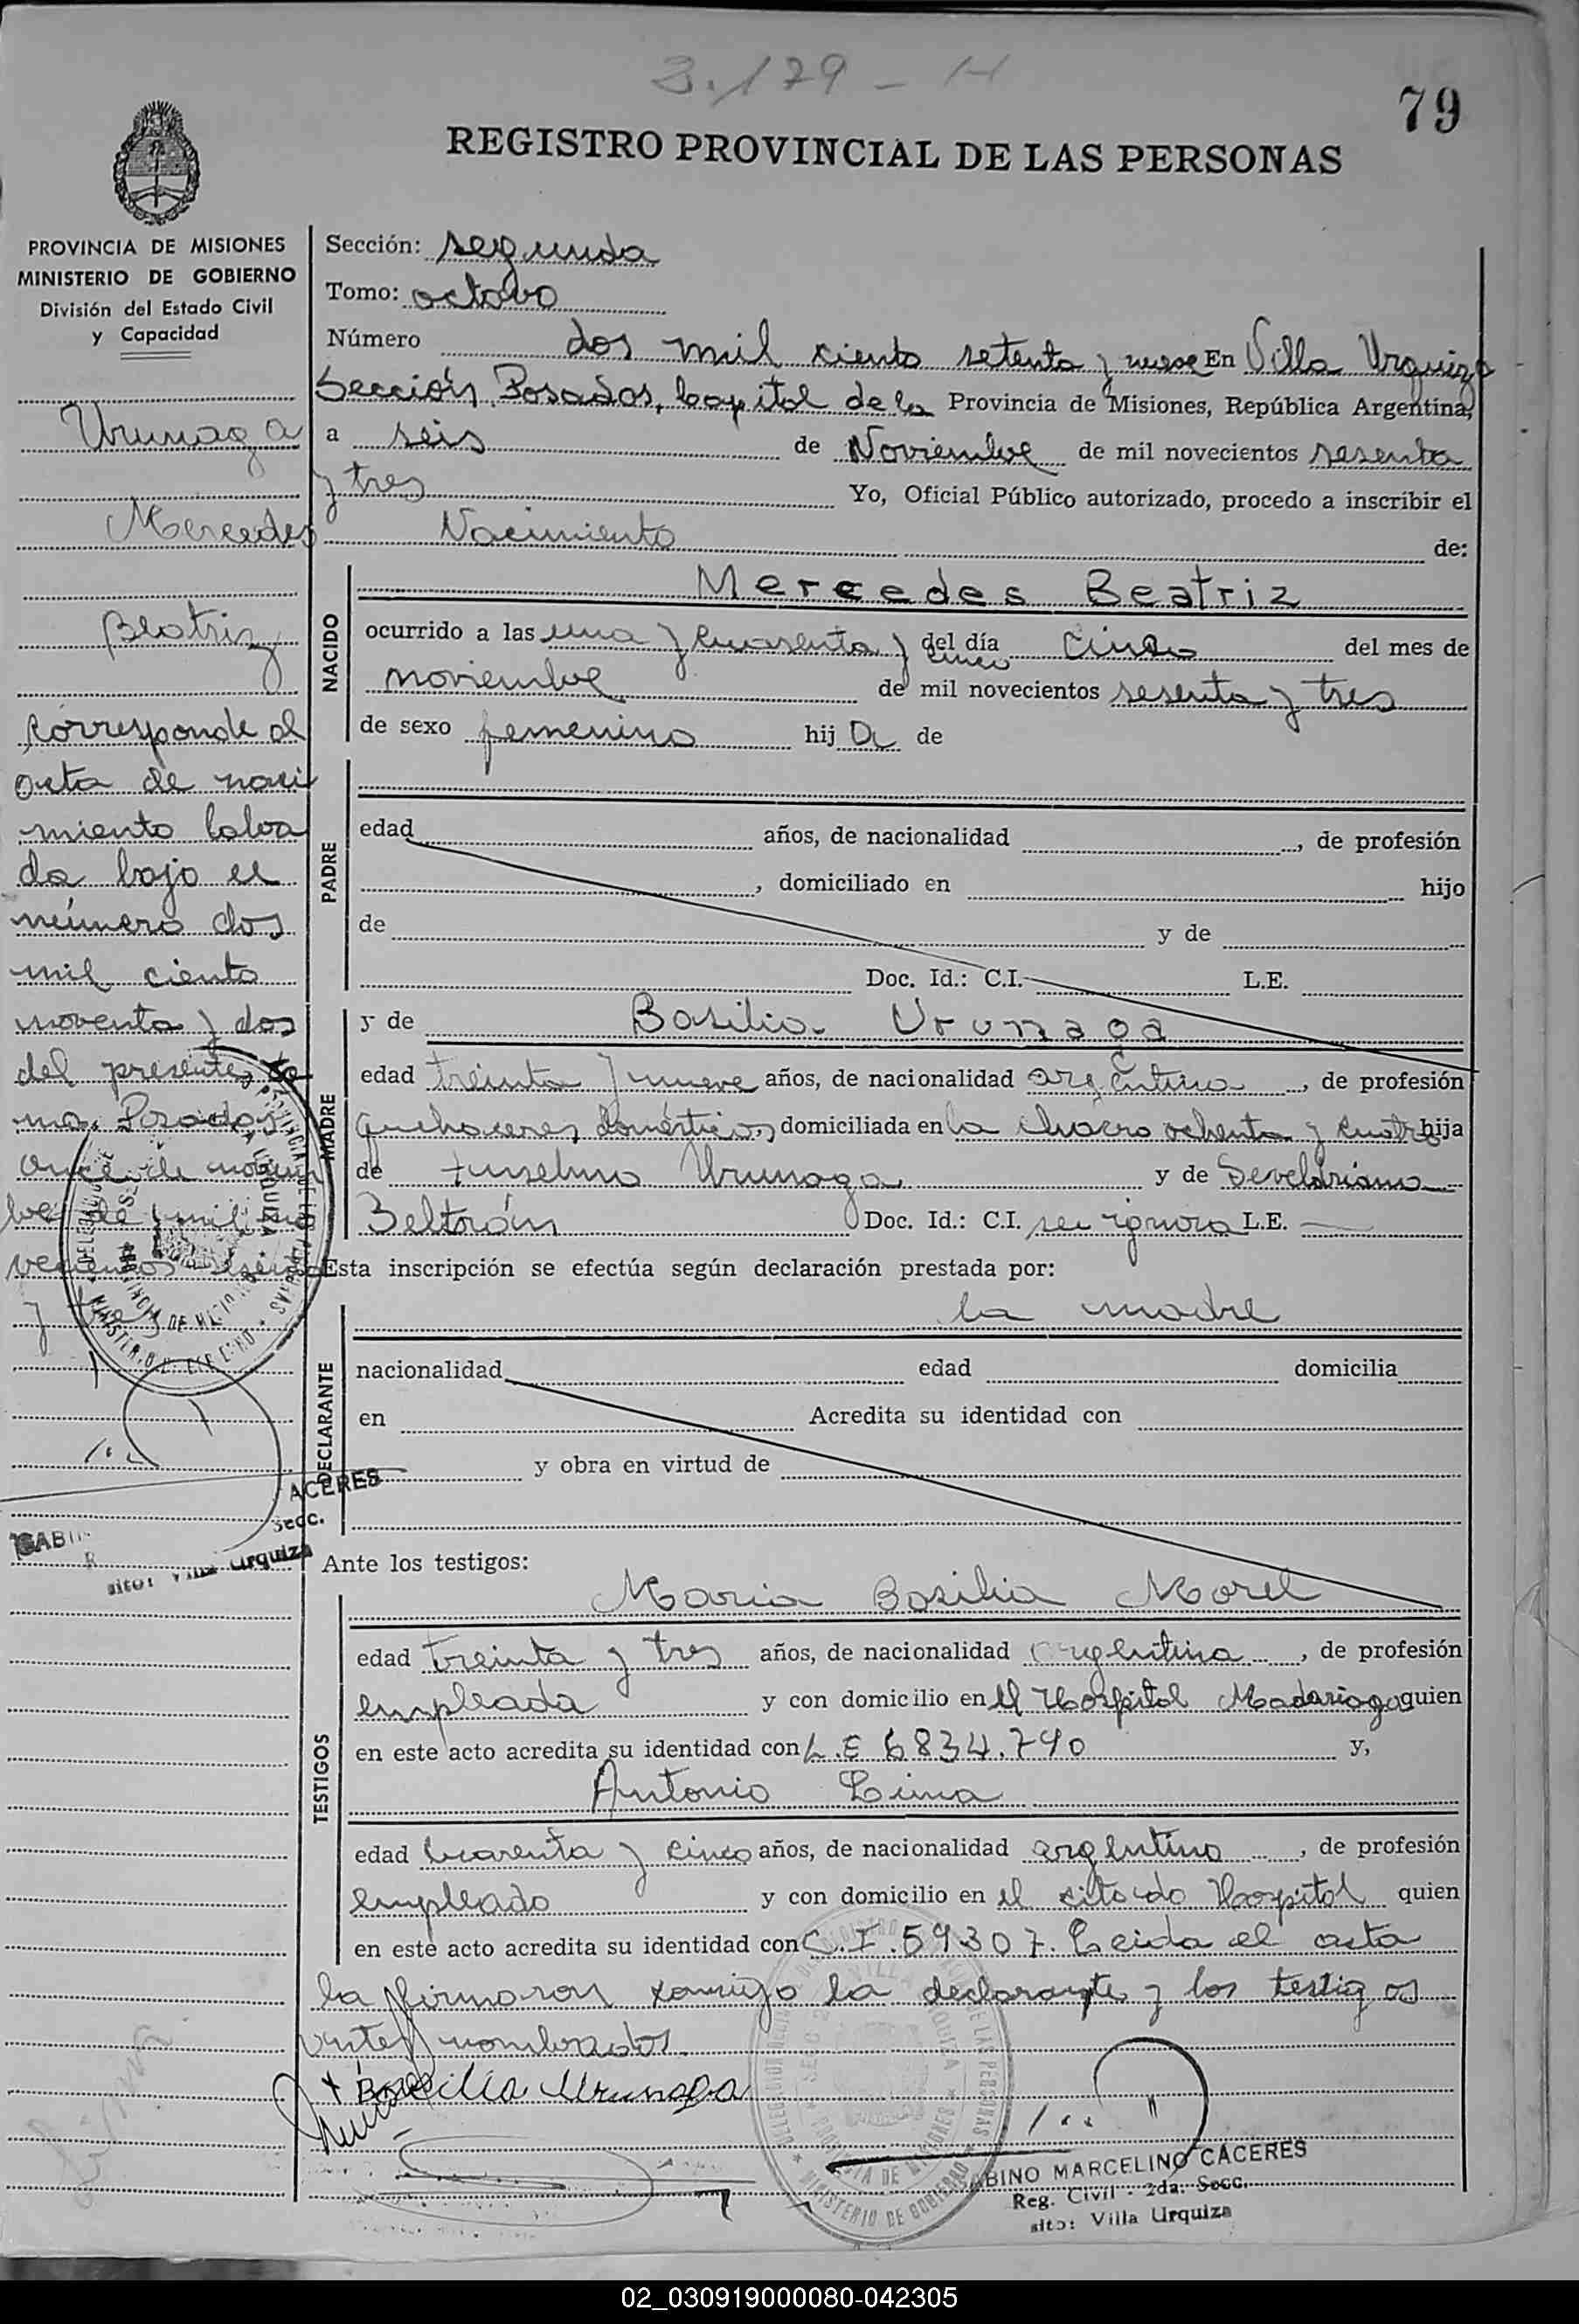 2.179 - H
79
REGISTRO PROVINCIAL DE LAS PERSONAS
PROVINCIA DE MISIONES
MINISTERIO DE GOBIERNO
División del Estado Civil
y Capacidad
Urunaga
Mercedes
Beatriz
Corresponde al
acta de naci
miento labra
da bajo el
número dos
mil ciento
noventa y dos
del presente to
mo. Posadas
once de noviem
bre de mil no
vecientos sesenta
y tres
ACERES
Secc.
SABIN
sito: Villa Urquiza
Sección: segunda
Tomo: octavo
Número dos mil ciento setenta y nueve En Villa Urquiza
Sección, Posadas, Capital de la Provincia de Misiones, República Argentina,
a seis de Noviembre de mil novecientos sesenta
y tres Yo, Oficial Público autorizado, procedo a inscribir el
Nacimiento de:
NACIDO
Mercedes Beatriz
ocurrido a las una y cuarenta y cinco del día cinco del mes de
noviembre de mil novecientos sesenta y tres
de sexo femenino hija de
PADRE
edad años, de nacionalidad , de profesión
, domiciliado en hijo
de y de
Doc. Id.: C.I. L.E.
MADRE
y de Basilia Urunaga
edad treinta y nueve años, de nacionalidad argentina , de profesión
quehaceres domésticos, domiciliada en la chacra ochenta y cuatro hija
de Anselmo Urunaga y de
Beltrán Doc. Id.: C.I. se ignora L.E.
Esta inscripción se efectúa según declaración prestada por:
DECLARANTE
la madre
nacionalidad edad domicilia
en Acredita su identidad con
y obra en virtud de
Ante los testigos:
TESTIGOS
Maria Basilia Morel
edad treinta y tres años, de nacionalidad argentina , de profesión
empleada y con domicilio en el Hospital Madariaga quien
en este acto acredita su identidad con L.E 6834.790 y,
Antonio Lima
edad cuarenta y cinco años, de nacionalidad argentino , de profesión
empleado y con domicilio en el citado Hospital quien
en este acto acredita su identidad con C.I. 59307. Leida el acta
la firmaron conmigo la declarante y los testigos
antes nombrados.
x Bacilia Urunaga
SABINO MARCELINO CACERES
Reg. Civil - 2da. Secc.
sito: Villa Urquiza
02_030919000080-042305